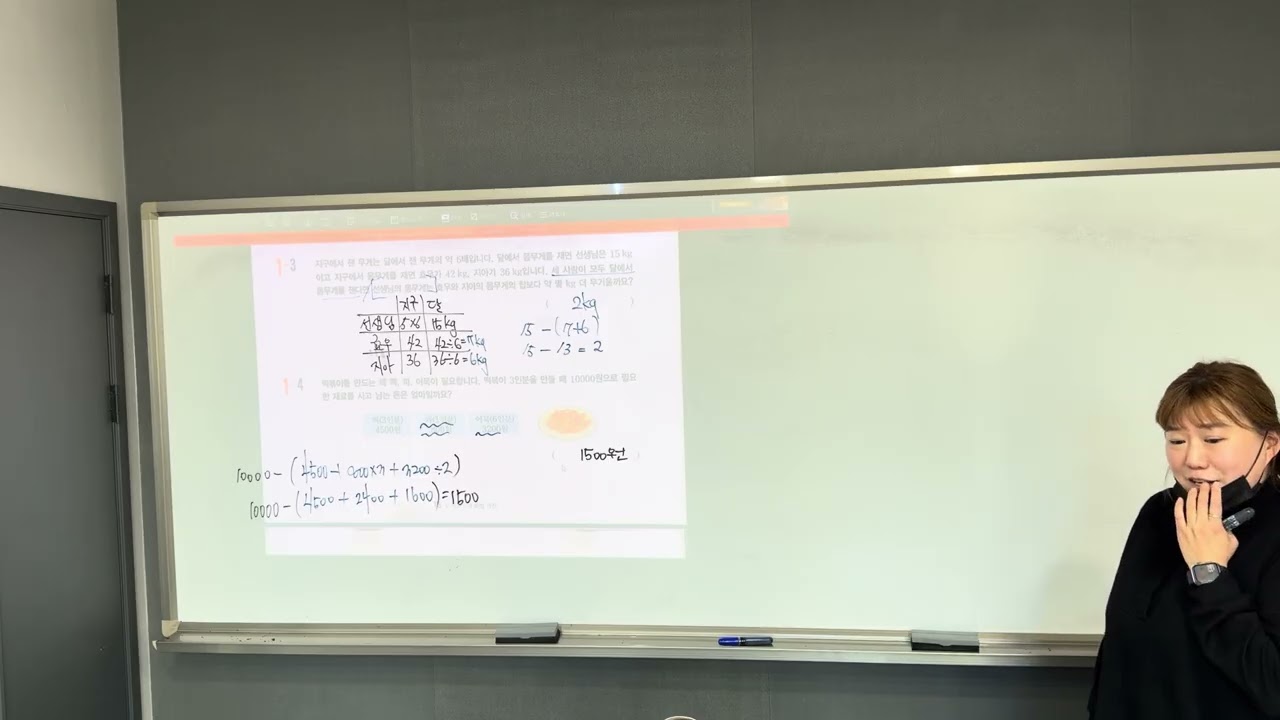 1-3 지구에서 잰 무게는 달에서 잰 무게의 약 6배입니다. 달에서 몸무게를 재면 선생님은 15 kg
이고 지구에서 몸무게를 재면 효우가 42 kg, 지아가 36 kg입니다. 세 사람이 모두 달에서
몸무게를 잰다면 선생님의 몸무게는 효우와 지아의 몸무게의 합보다 약 몇 kg 더 무거울까요?
지구 달
( 2kg )
선생님 15kg
15-(7+6)
효우 42 42÷6=7kg
15-13=2
지아 36 36÷6=6kg
1-4 떡볶이를 만드는 데 떡, 파, 어묵이 필요합니다. 떡볶이 3인분을 만들 때 10000원으로 필요
한 재료를 사고 남는 돈은 얼마일까요?
4500원
3200원
( 1500원 )
10000-(4500+800×3+3200÷2)
10000-(4500+2400+1600)=1500